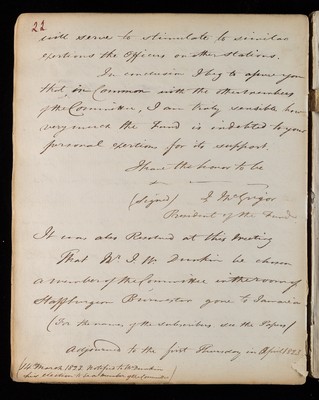 22
will serve to stimulate to similar
exertions the Officers on other stations.
In conclusion I beg to assure you
that in Common with the other members
of the Committee, I am truly sensible how
very much the Fund is indebted to your
personal exertions for its support.
I have the honor to be
(Signed) J McGrigor
President of the Fund
It was also Resolved at this Meeting
That Mr. J. W. be chosen
a member of the Committee in the room of
Staff Surgeon gone to Jamaica
(For the names of the subscribers see the Papers)
Adjourned to the first Thursday in April 1822.
14 March 1822 Notified to Mr.
his election to be a member of the Committee